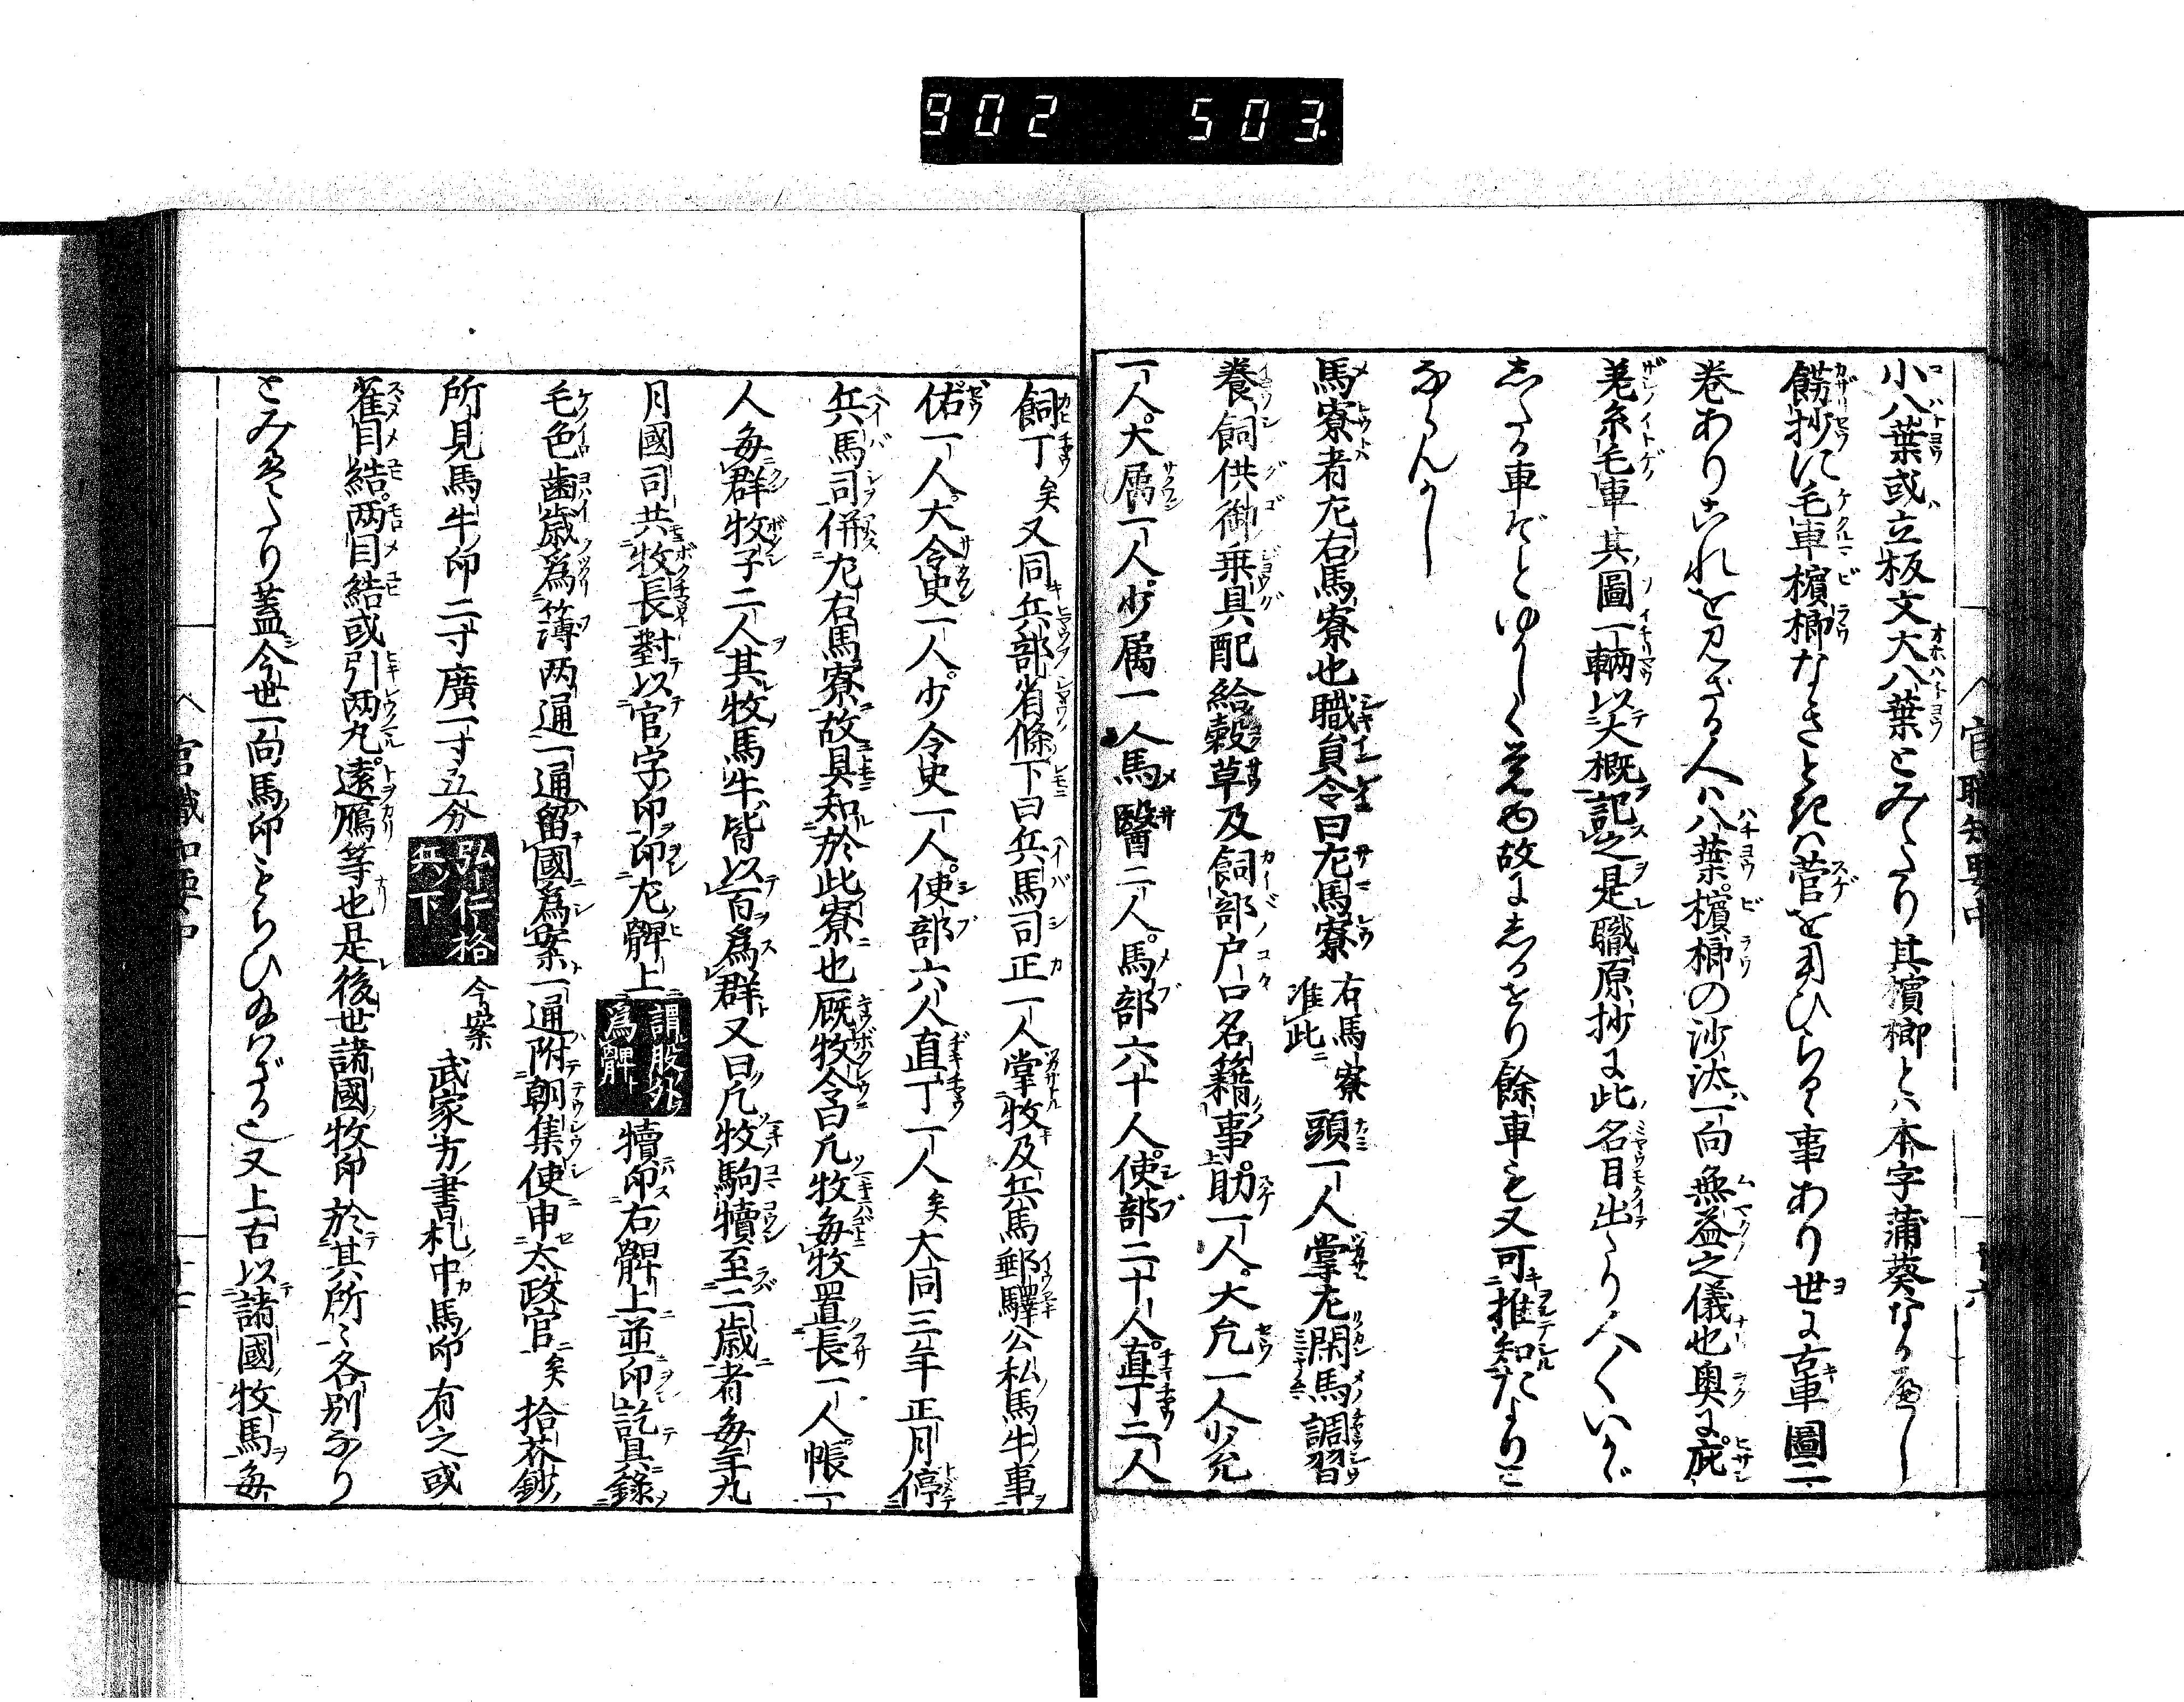 902 503.
小八葉或立板文大八葉とみへたり其濱榔とハ本字蒲葵なるへし
餝抄に毛車檳榔なきとき𛂞菅を用ひらるゝ事あり世に古車圖二
巻ありこれを見さる人ハ八葉檳榔の沙汰一向無益之儀也奥に庇
差糸毛車其圖一輌以大概記之是職原抄に此名目出たり人くいかゞ
したる車ぞとゆかしく覚ゆ故にしるせり餘車も又可推知たよりに
ならんかし
馬寮者左右馬寮也職員令曰左馬寮 右馬寮准此 頭一人掌左閑馬調習
養飼供御乗具配給穀草及飼部戸口名籍事助一人大允一人少允
一人大属一人少属一人馬醫二人馬部六十人使部二十人直丁二人
官職知要中
飼丁矣又同兵部省條下曰兵馬司正一人掌牧及兵馬郵驛公私馬牛事
佑一人大令史一人少令史一人使部六人直丁一人矣大同三年正月停
兵馬司併左右馬寮故具知於此寮也厩牧令曰凡牧毎牧置長一人帳一
人毎群牧子二人其牧馬牛皆以百為群又曰凡牧駒犢至二歳者毎年九
月國司共牧長對以官字印印左髀上 謂股外為髀 犢印右髀上並印訖具録
毛色歯歳為簿两通一通留國為案一通附朝集使申太政官矣拾芥鈔
所見馬牛印二寸廣一寸五分 弘仁格兵下 今案武家方書札中馬印有之或
雀目結两目結或引两丸遠鴈等也是後世諸國牧印於其所々各別なり
とみえたり蓋今世一向馬印もちひ給はざる也又上古以諸國牧馬毎
官職知要中